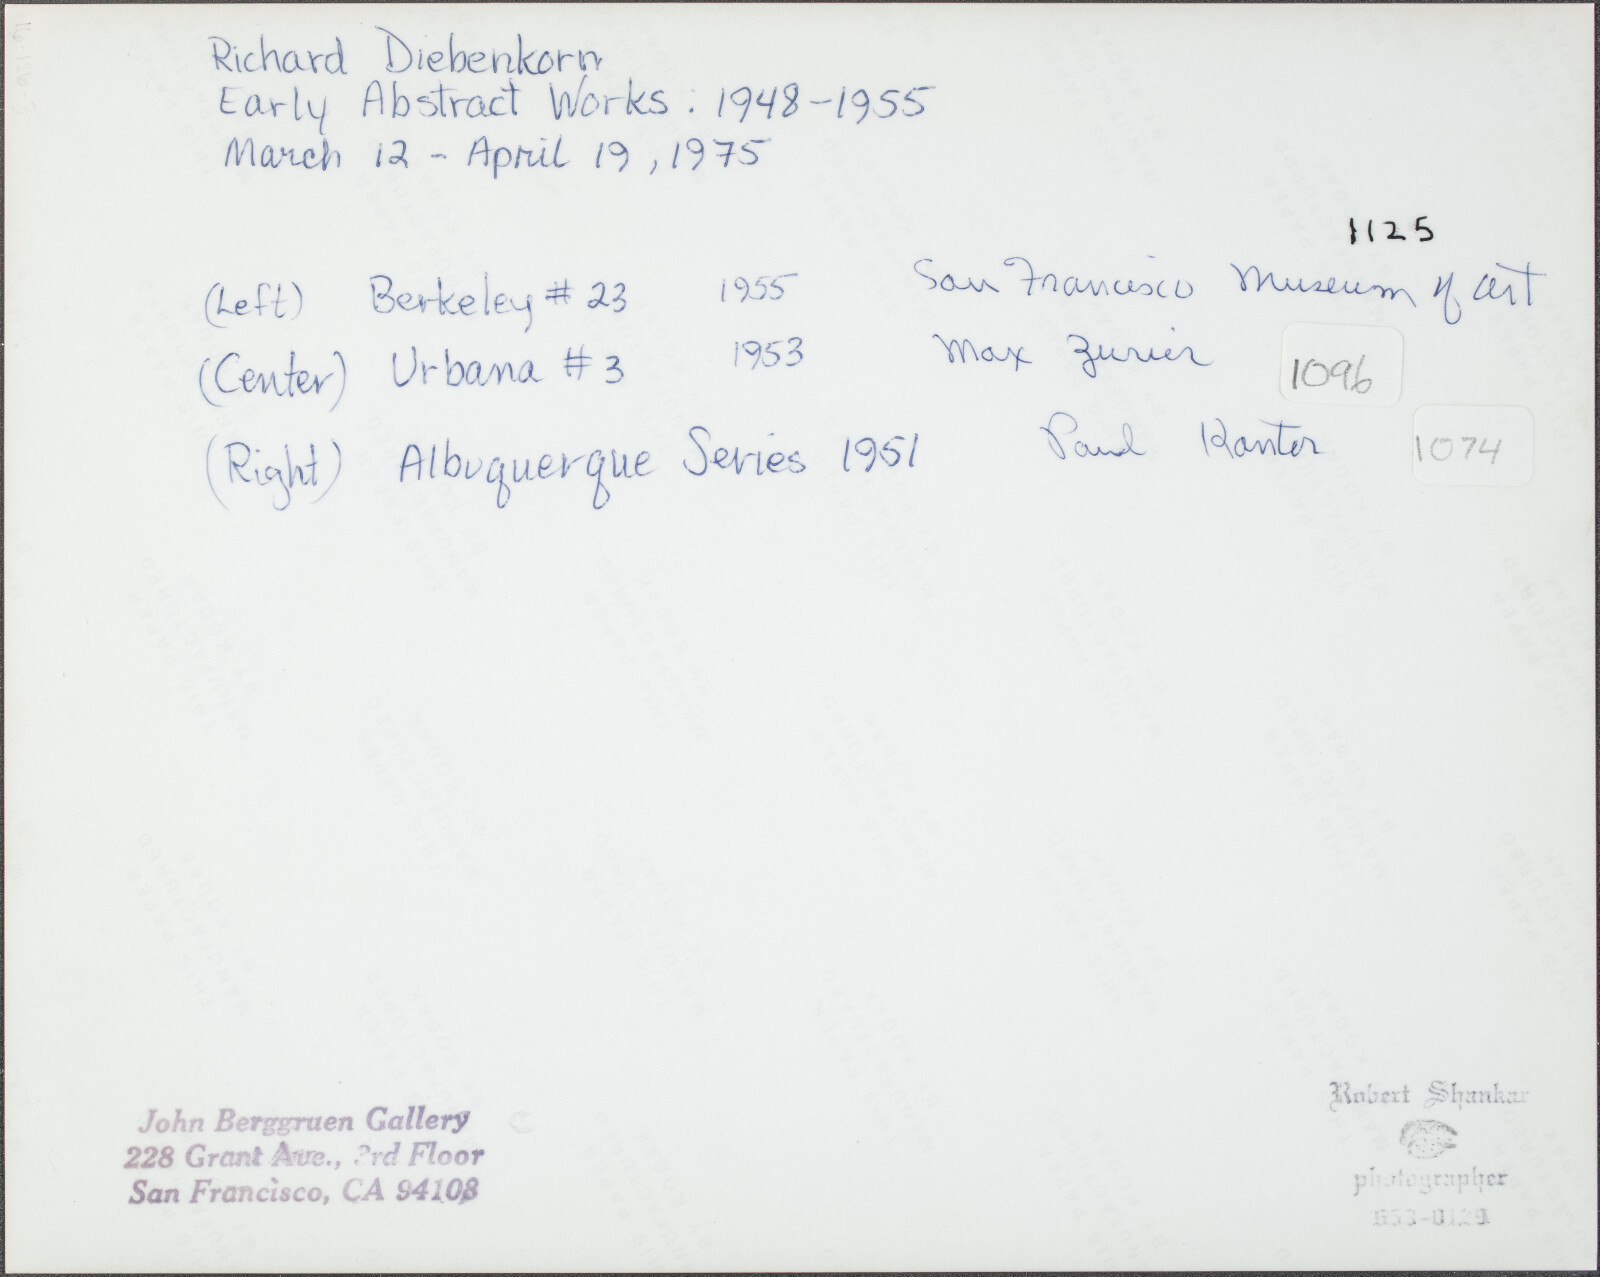 Richard Diebenkorn
Early Abstract Works : 1948-1955
March 12 - April 19, 1975
1125
(Left) Berkeley # 23 1955 San Francisco Museum of Art
(Center) Urbana # 3 1953 Max Zurier 1096
(Right) Albuquerque Series 1951 Paul Kantor 1074
John Berggruen Gallery
228 Grant Ave., 3rd Floor
San Francisco, CA 94108
Robert Shankar
photographer
THIS PAPER
MANUFACTURED
BY KODAK